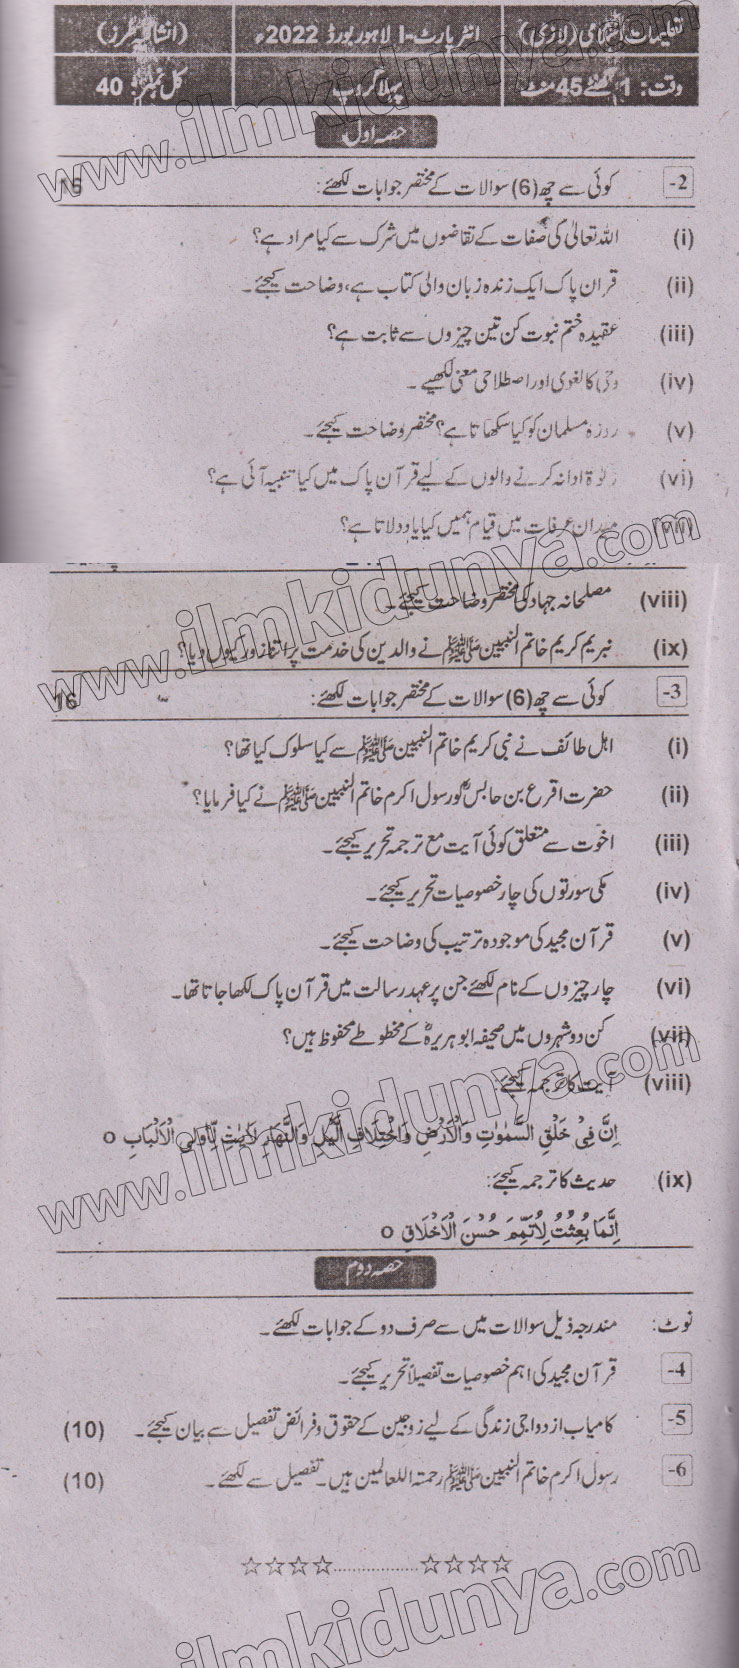 تعلیمات اسلامی (لازمی) انٹر پارٹ-I لاہور بورڈ 2022ء (انشائیہ طرز)
وقت: 1 گھنٹے 45 منٹ پہلا گروپ کل نمبر: 40
حصہ اول
2- کوئی سے چھ (6) سوالات کے مختصر جوابات لکھئے:
(i) اللہ تعالیٰ کی صفات کے تقاضوں میں شرک سے کیا مراد ہے؟
(ii) قران پاک ایک زندہ زبان والی کتاب ہے، وضاحت کیجئے۔
(iii) عقیدہ ختم نبوت کن تین چیزوں سے ثابت ہے؟
(iv) وحی کا لغوی اور اصطلاحی معنی لکھیے۔
(v) روزہ مسلمان کو کیا سکھاتا ہے؟ مختصر وضاحت کیجئے۔
(vi) زکوٰۃ ادا نہ کرنے والوں کے لیے قرآن پاک میں کیا تنبیہ آئی ہے؟
(vii) میدان عرفات میں قیام ہمیں کیا یاد دلاتا ہے؟
(viii) مصلحانہ جہاد کی مختصر وضاحت کیجئے۔
(ix) نبریم کریم خاتم النبیین ﷺ نے والدین کی خدمت پر اتنا زور کیوں دیا؟
3- کوئی سے چھ (6) سوالات کے مختصر جوابات لکھئے: 16
(i) اہل طائف نے نبی کریم خاتم النبیین ﷺ سے کیا سلوک کیا تھا؟
(ii) حضرت اقرع بن حابسؓ کو رسول اکرم خاتم النبیین ﷺ نے کیا فرمایا؟
(iii) اخوت سے متعلق کوئی آیت مع ترجمہ تحریر کیجئے۔
(iv) مکی سورتوں کی چار خصوصیات تحریر کیجئے۔
(v) قرآن مجید کی موجودہ ترتیب کی وضاحت کیجئے۔
(vi) چار چیزوں کے نام لکھئے جن پر عہد رسالت میں قرآن پاک لکھا جاتا تھا۔
(vii) کن دو شہروں میں صحیفہ ابو ہریرہؓ کے مخطوطے محفوظ ہیں؟
(viii) آیت کا ترجمہ کیجئے:
اِنَّ فِیْ خَلْقِ السَّمٰوٰتِ وَالْاَرْضِ وَاخْتِلَافِ الَّیْلِ وَالنَّهَارِ لَاٰیٰتٍ لِّاُولِی الْاَلْبَابِ o
(ix) حدیث کا ترجمہ کیجئے:
اِنَّمَا بُعِثْتُ لِاُتَمِّمَ حُسْنَ الْاَخْلَاقِ o
حصہ دوم
نوٹ: مندرجہ ذیل سوالات میں سے صرف دو کے جوابات لکھئے۔
4- قرآن مجید کی اہم خصوصیات تفصیلاً تحریر کیجئے۔
5- کامیاب ازدواجی زندگی کے لیے زوجین کے حقوق و فرائض تفصیل سے بیان کیجئے۔ (10)
6- رسول اکرم خاتم النبیین ﷺ رحمتہ اللعالمین ہیں۔ تفصیل سے لکھئے۔ (10)
☆☆☆☆..................☆☆☆☆
www.ilmkidunya.com
www.ilmkidunya.com
www.ilmkidunya.com
ilmkidunya.com